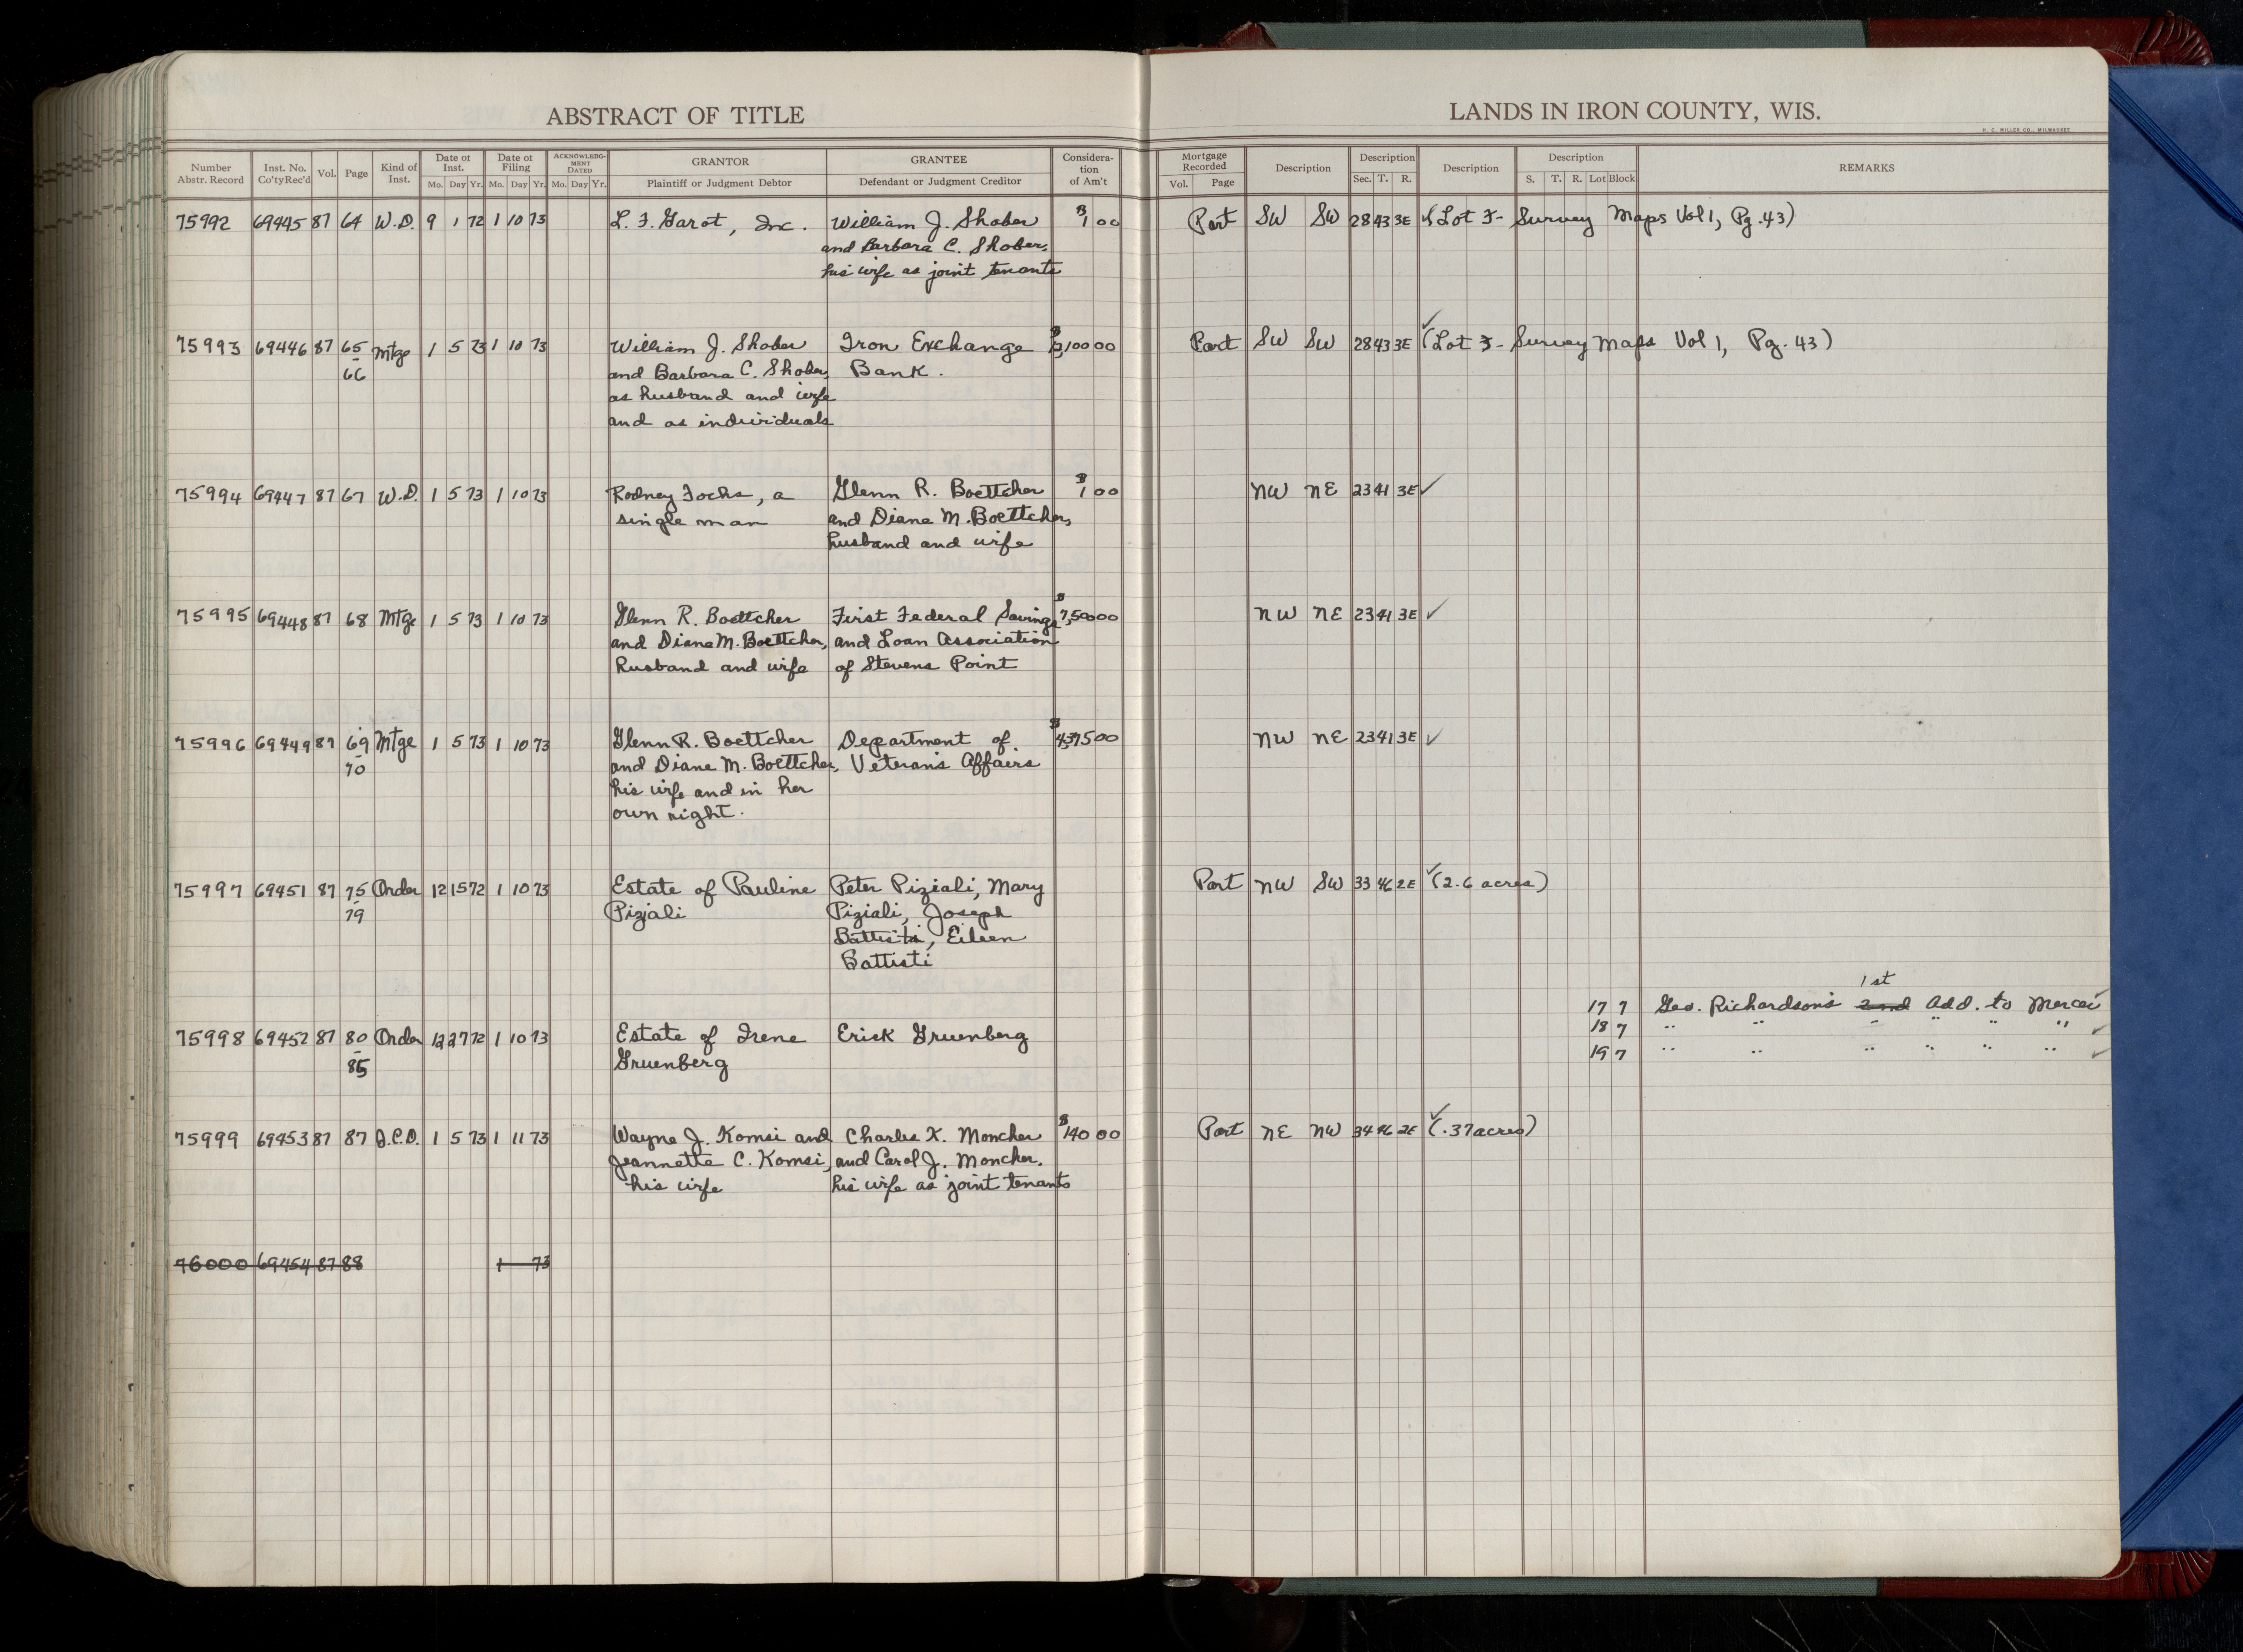 ABSTRACT OF TITLE
LANDS IN IRON COUNTY, WIS.
H. C. MILLER CO., MILWAUKEE
Number Abstr. Record Inst. No. Co'ty Rec'd Vol. Page Kind of Inst. Date of Inst. Mo. Day Yr. Date of Filing Mo. Day Yr. ACKNOWLEDGMENT DATED Mo. Day Yr. GRANTOR Plaintiff or Judgment Debtor GRANTEE Defendant or Judgment Creditor Consideration of Am't Mortgage Recorded Vol. Page Description Description Sec. T. R. Description Description S. T. R. Lot Block REMARKS
75992 69445 87 64 W.D. 9 1 72 1 10 73 L. F. Garot, Inc. William J. Shober $1 00 Part SW SW 28 43 3E ✓ (Lot 3- Survey Maps Vol 1, Pg. 43)
and Barbara C. Shober,
his wife as joint tenants
75993 69446 87 65 Mtge 1 5 73 1 10 73 William J. Shober Iron Exchange 100 00 Part SW SW 28 43 3E ✓ (Lot 3- Survey Maps Vol 1, Pg. 43)
66 and Barbara C. Shober, Bank.
as husband and wife
and as individuals
75994 69447 87 67 W.D. 1 5 73 1 10 73 Rodney Fochs, a Glenn R. Boettcher $1 00 NW NE 23 41 3E ✓
single man and Diane M. Boettcher,
husband and wife
75995 69448 87 68 Mtge 1 5 73 1 10 73 Glenn R. Boettcher First Federal Savings $7,500 00 NW NE 23 41 3E ✓
and Diane M. Boettcher, and Loan Association
husband and wife of Stevens Point
75996 69449 87 69 Mtge 1 5 73 1 10 73 Glenn R. Boettcher Department of $4,375 00 NW NE 23 41 3E ✓
70 and Diane M. Boettcher, Veterans Affairs
his wife and in her
own right.
75997 69451 87 75 Order 12 15 72 1 10 73 Estate of Pauline Peter Piziali, Mary Part NW SW 33 46 2E ✓ (2.6 acres)
79 Piziali Piziali, Joseph
Battisti, Eileen
Battisti
1st
17 7 Geo. Richardson's 2nd Add. to Mercer ✓
18 7 " " " " " " ✓
75998 69452 87 80 Order 12 27 72 1 10 73 Estate of Irene Erick Gruenberg
19 7 " " " " " " ✓
85 Gruenberg
75999 69453 87 87 Q.C.D. 1 5 73 1 11 73 Wayne J. Komsi and Charles X. Moncher $140 00 Part NE NW 34 46 2E ✓ (.37 acres)
Jeannette C. Komsi, and Carol J. Moncher,
his wife his wife as joint tenants
76000 69454 87 88 1 73